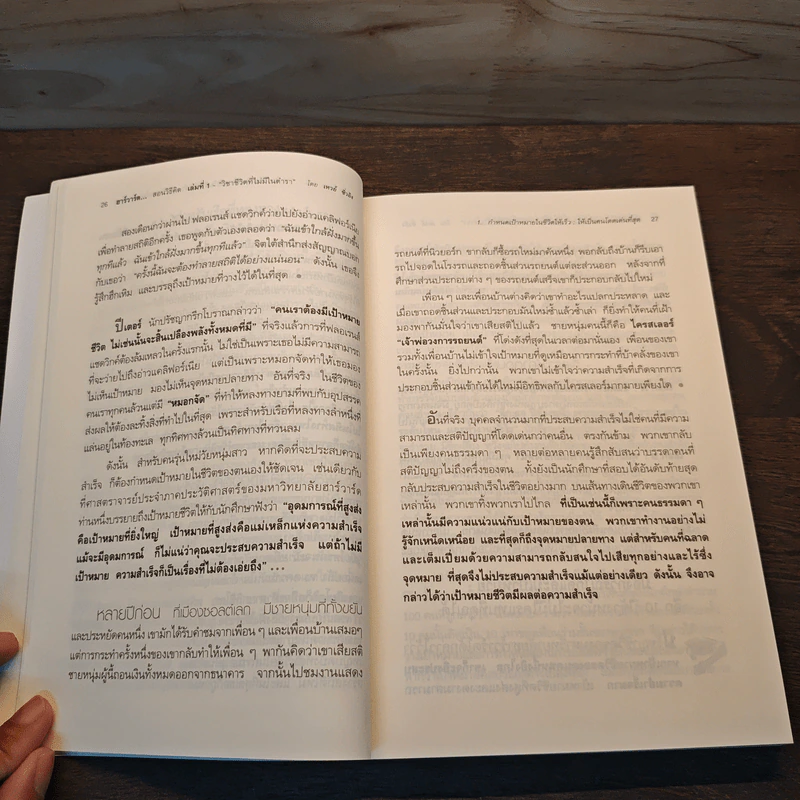 26 ฮาร์วาร์ด... สอนวิธีคิด เล่มที่ 1 - "วิชาชีวิตที่ไม่มีในตำรา" โดย
สองเดือนกว่าผ่านไป ฟลอเรนส์ แชดวิกค์ว่ายไปยังอ่าวแคลิฟอร์เนีย
เพื่อทำลายสถิติอีกครั้ง เธอพูดกับตัวเองตลอดว่า "ฉันเข้าใกล้ฝั่งมากขึ้น
ทุกทีแล้ว ฉันเข้าใกล้ฝั่งมากขึ้นทุกทีแล้ว" จิตใต้สำนึกส่งสัญญาณบอก
กับเธอว่า "ครั้งนี้ฉันจะต้องทำลายสถิติได้อย่างแน่นอน" ดังนั้น เธอจึง
รู้สึกฮึกเหิม และบรรลุถึงเป้าหมายที่วางไว้ได้ในที่สุด
ปีเตอร์ นักปรัชญากรีกโบราณกล่าวว่า "คนเราต้องมีเป้าหมาย
ชีวิต ไม่เช่นนั้นจะสิ้นเปลืองพลังทั้งหมดที่มี" ที่จริงแล้วการที่ฟลอเรนส์
แชดวิกค์ต้องล้มเหลวในครั้งแรกนั้น ไม่ใช่เป็นเพราะเธอไม่มีความสามารถ
ที่จะว่ายไปถึงอ่าวแคลิฟอร์เนีย แต่เป็นเพราะหมอกจัดทำให้เธอมอง
ไม่เห็นเป้าหมาย มองไม่เห็นจุดหมายปลายทาง อันที่จริง ในชีวิตของ
คนเราทุกคนล้วนแต่มี "หมอกจัด" ที่ทำให้หลงทางยามที่พบกับอุปสรรค
ส่งผลให้ต้องละทิ้งสิ่งที่ทำไปในที่สุด เพราะสำหรับเรือที่หลงทางลำหนึ่งที่
แล่นอยู่ในท้องทะเล ทุกทิศทางล้วนเป็นทิศทางที่ทวนลม
ดังนั้น สำหรับคนรุ่นใหม่วัยหนุ่มสาว หากคิดที่จะประสบความ
สำเร็จ ก็ต้องกำหนดเป้าหมายในชีวิตของตนเองให้ชัดเจน เช่นเดียวกับ
ที่ศาสตราจารย์ประจำภาคประวัติศาสตร์ของมหาวิทยาลัยฮาร์วาร์ด
ท่านหนึ่งบรรยายถึงเป้าหมายชีวิตให้กับนักศึกษาฟังว่า "อุดมการณ์ที่สูงส่ง
คือเป้าหมายที่ยิ่งใหญ่ เป้าหมายที่สูงส่งคือแม่เหล็กแห่งความสำเร็จ
แม้จะมีอุดมการณ์ ก็ไม่แน่ว่าคุณจะประสบความสำเร็จ แต่ถ้าไม่มี
เป้าหมาย ความสำเร็จก็เป็นเรื่องที่ไม่ต้องเอ่ยถึง" ...
หลายปีก่อน ที่เมืองซอลต์เลก มีชายหนุ่มที่ทั้งขยัน
และประหยัดคนหนึ่ง เขามักได้รับคำชมจากเพื่อน ๆ และเพื่อนบ้านเสมอๆ
แต่การกระทำครั้งหนึ่งของเขากลับทำให้เพื่อน ๆ พากันคิดว่าเขาเสียสติ
ชายหนุ่มผู้นี้ถอนเงินทั้งหมดออกจากธนาคาร จากนั้นไปชมงานแสดง
1. กำหนดเป้าหมายในชีวิตให้เร็ว.. ให้เป็นคนโดดเด่นที่สุด 27
รถยนต์ที่นิวยอร์ก ขากลับก็ซื้อรถใหม่มาคันหนึ่ง พอกลับถึงบ้านก็รีบเอา
รถไปจอดในโรงรถและถอดชิ้นส่วนรถยนต์แต่ละส่วนออก หลังจากที่
ศึกษาส่วนประกอบต่าง ๆ ของรถยนต์เสร็จเขาก็ประกอบกลับไปใหม่
เพื่อน ๆ และเพื่อนบ้านต่างคิดว่าเขาทำอะไรแปลกประหลาด และ
เมื่อเขาถอดชิ้นส่วนและประกอบมันใหม่ซ้ำแล้วซ้ำเล่า ก็ยิ่งทำให้คนที่เฝ้า
มองพากันมั่นใจว่าเขาเสียสติไปแล้ว ชายหนุ่มคนนี้ก็คือ ไครสเลอร์
"เจ้าพ่อวงการรถยนต์" ที่โด่งดังที่สุดในเวลาต่อมานั่นเอง เพื่อนของเขา
รวมทั้งเพื่อนบ้านไม่เข้าใจเป้าหมายที่ดูเหมือนการกระทำที่บ้าคลั่งของเขา
ในครั้งนั้น ยิ่งไปกว่านั้น พวกเขาไม่เข้าใจว่าความสำเร็จที่เกิดจากการ
ประกอบชิ้นส่วนเข้ากันได้ใหม่มีอิทธิพลกับไครสเลอร์มากมายเพียงใด
อันที่จริง บุคคลจำนวนมากที่ประสบความสำเร็จไม่ใช่คนที่มีความ
สามารถและสติปัญญาที่โดดเด่นกว่าคนอื่น ตรงกันข้าม พวกเขากลับ
เป็นเพียงคนธรรมดา ๆ หลายต่อหลายคนรู้สึกสับสนว่าบรรดาคนที่
สติปัญญาไม่ถึงครึ่งของตน ทั้งยังเป็นนักศึกษาที่สอบได้อันดับท้ายสุด
กลับประสบความสำเร็จในชีวิตอย่างมาก บนเส้นทางเดินชีวิตของพวกเขา
เหล่านั้น พวกเขาทิ้งพวกเราไปไกล ที่เป็นเช่นนี้ก็เพราะคนธรรมดา ๆ
เหล่านั้นมีความแน่วแน่กับเป้าหมายของตน พวกเขาทำงานอย่างไม่
รู้จักเหน็ดเหนื่อย และที่สุดก็ถึงจุดหมายปลายทาง แต่สำหรับคนที่ฉลาด
และเต็มเปี่ยมด้วยความสามารถกลับสนใจไปเสียทุกอย่างและไร้ซึ่ง
จุดหมาย ที่สุดจึงไม่ประสบความสำเร็จแม้แต่อย่างเดียว ดังนั้น จึงอาจ
กล่าวได้ว่าเป้าหมายชีวิตมีผลต่อความสำเร็จ